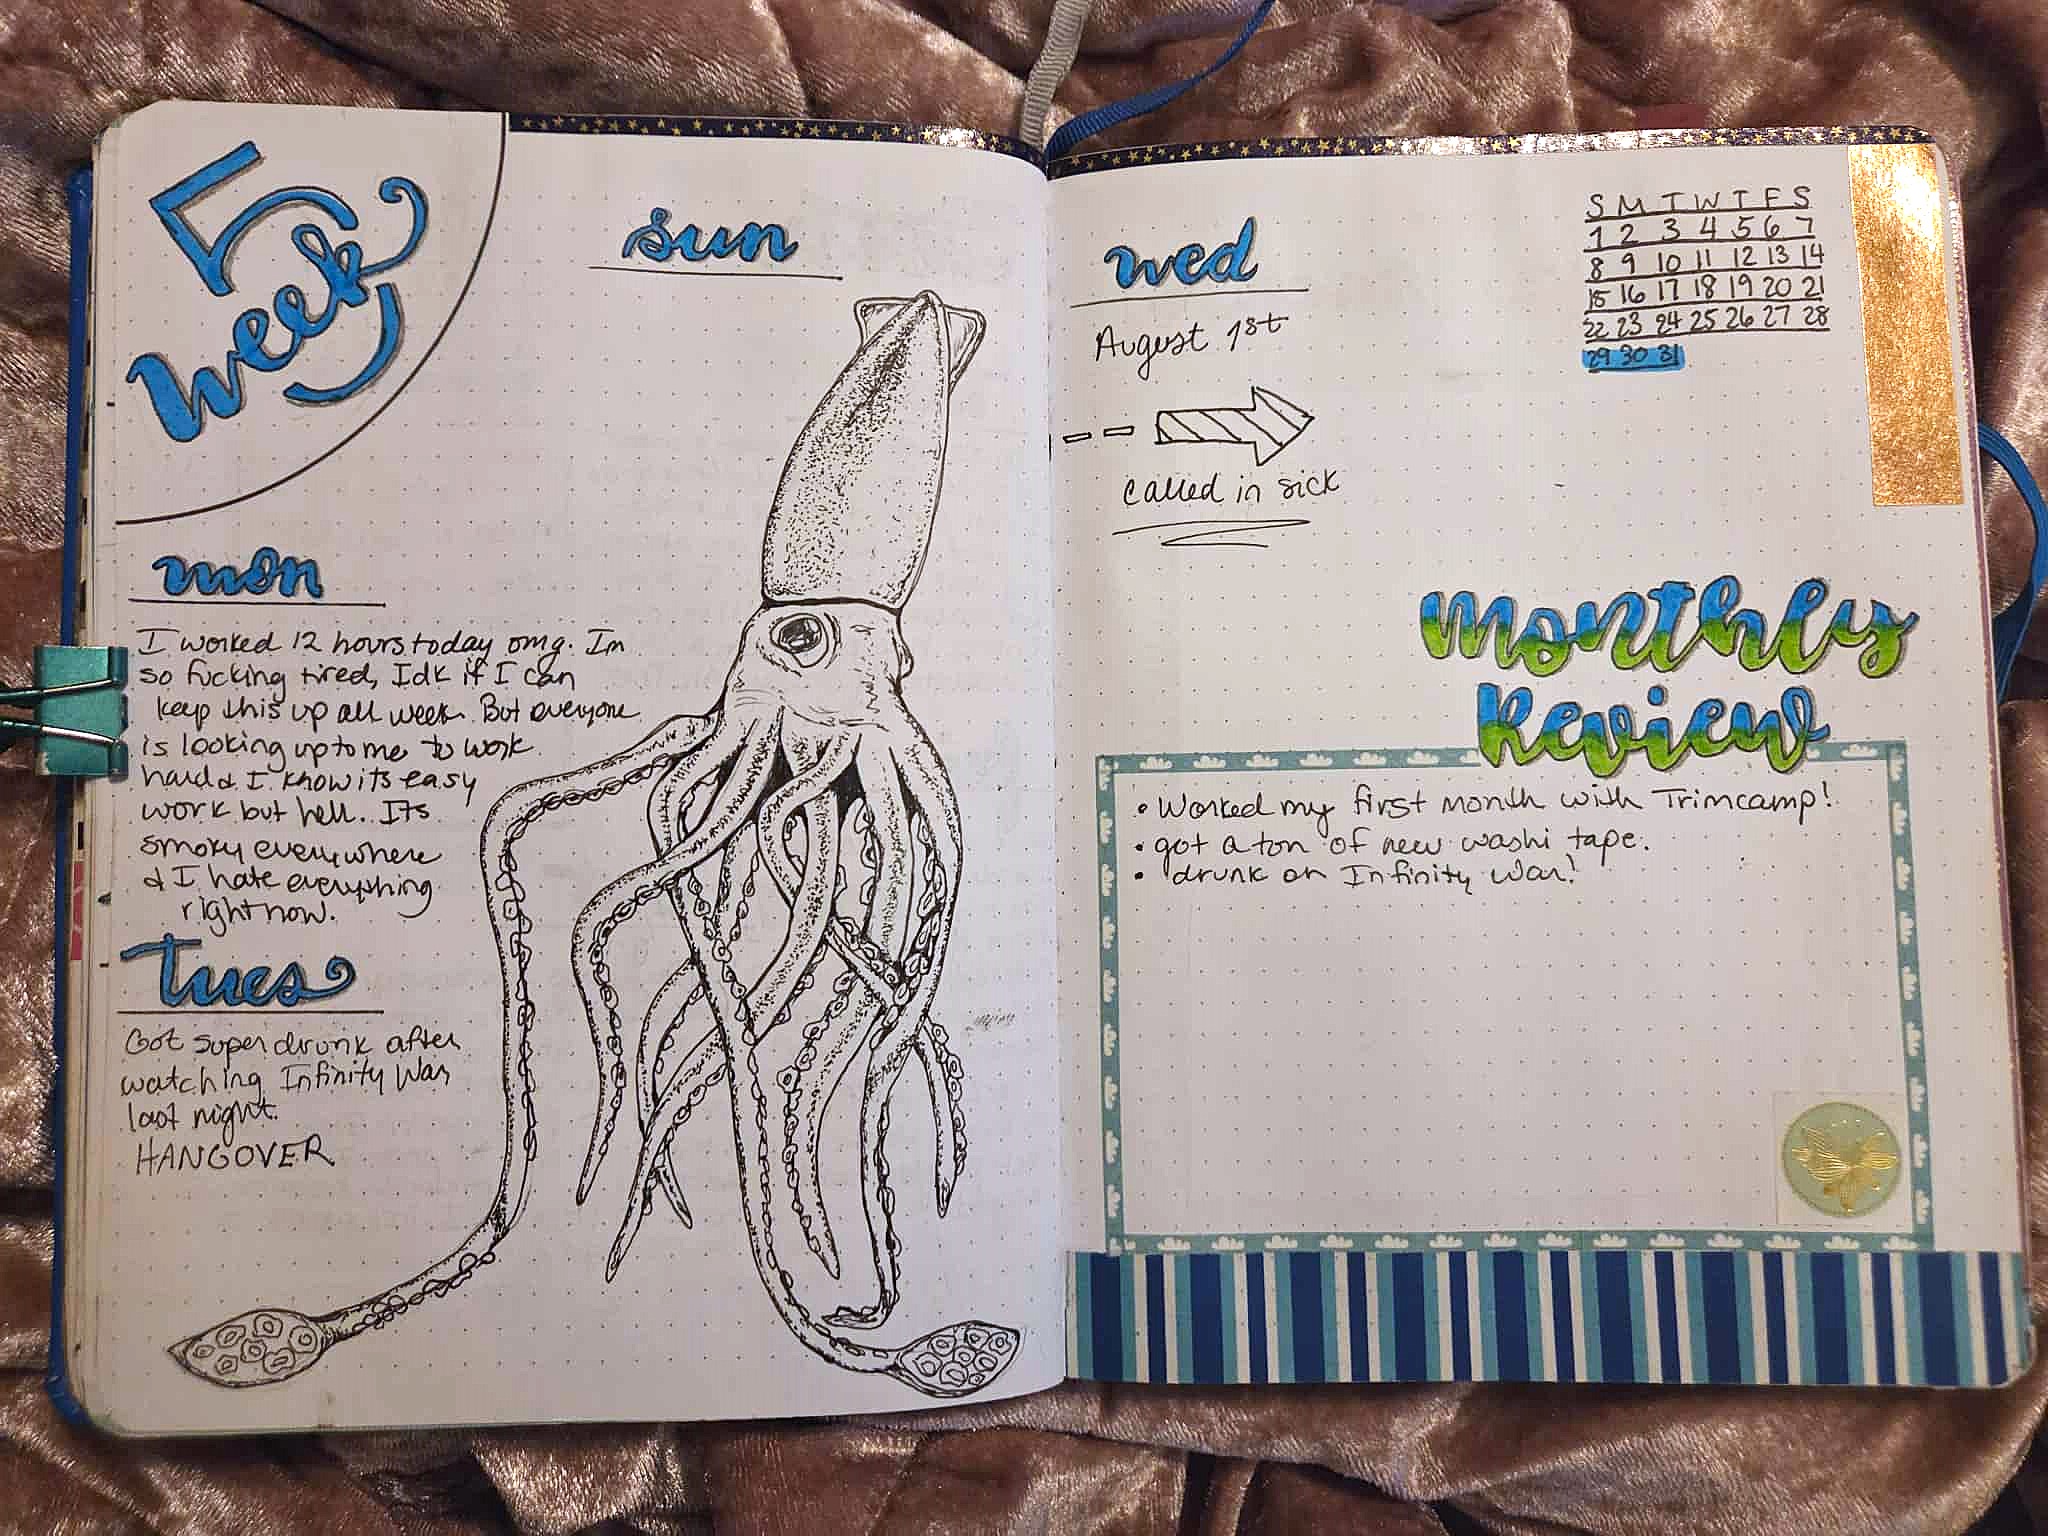 5
week
sun
mon
I worked 12 hours today omg. Im
so fucking tired, Idk if I can
keep this up all week. But everyone
is looking up to me to work
hard & I know its easy
work but hell. Its
smoky everywhere
& I hate everything
right now.
Tues
Got super drunk after
watching Infinity War
last night.
HANGOVER
wed
August 1st
called in sick
S M T W T F S
1 2 3 4 5 6 7
8 9 10 11 12 13 14
15 16 17 18 19 20 21
22 23 24 25 26 27 28
29 30 31
Monthly
Review
• Worked my first month with Trimcamp!
• got a ton of new washi tape.
• drunk on Infinity War!